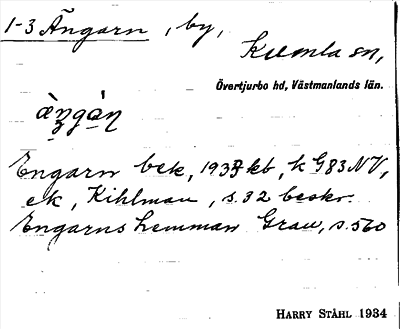 1-3 Ängarn, by,
Kumla sn,
Övertjurbo hd, Västmanlands län.
àŋgàṇ
Engarn bek, 1937 kb, k G83 NV,
ek, Kihlman, s. 32 beskr.
Engarns hemman Grau, s. 560
HARRY STÅHL 1934